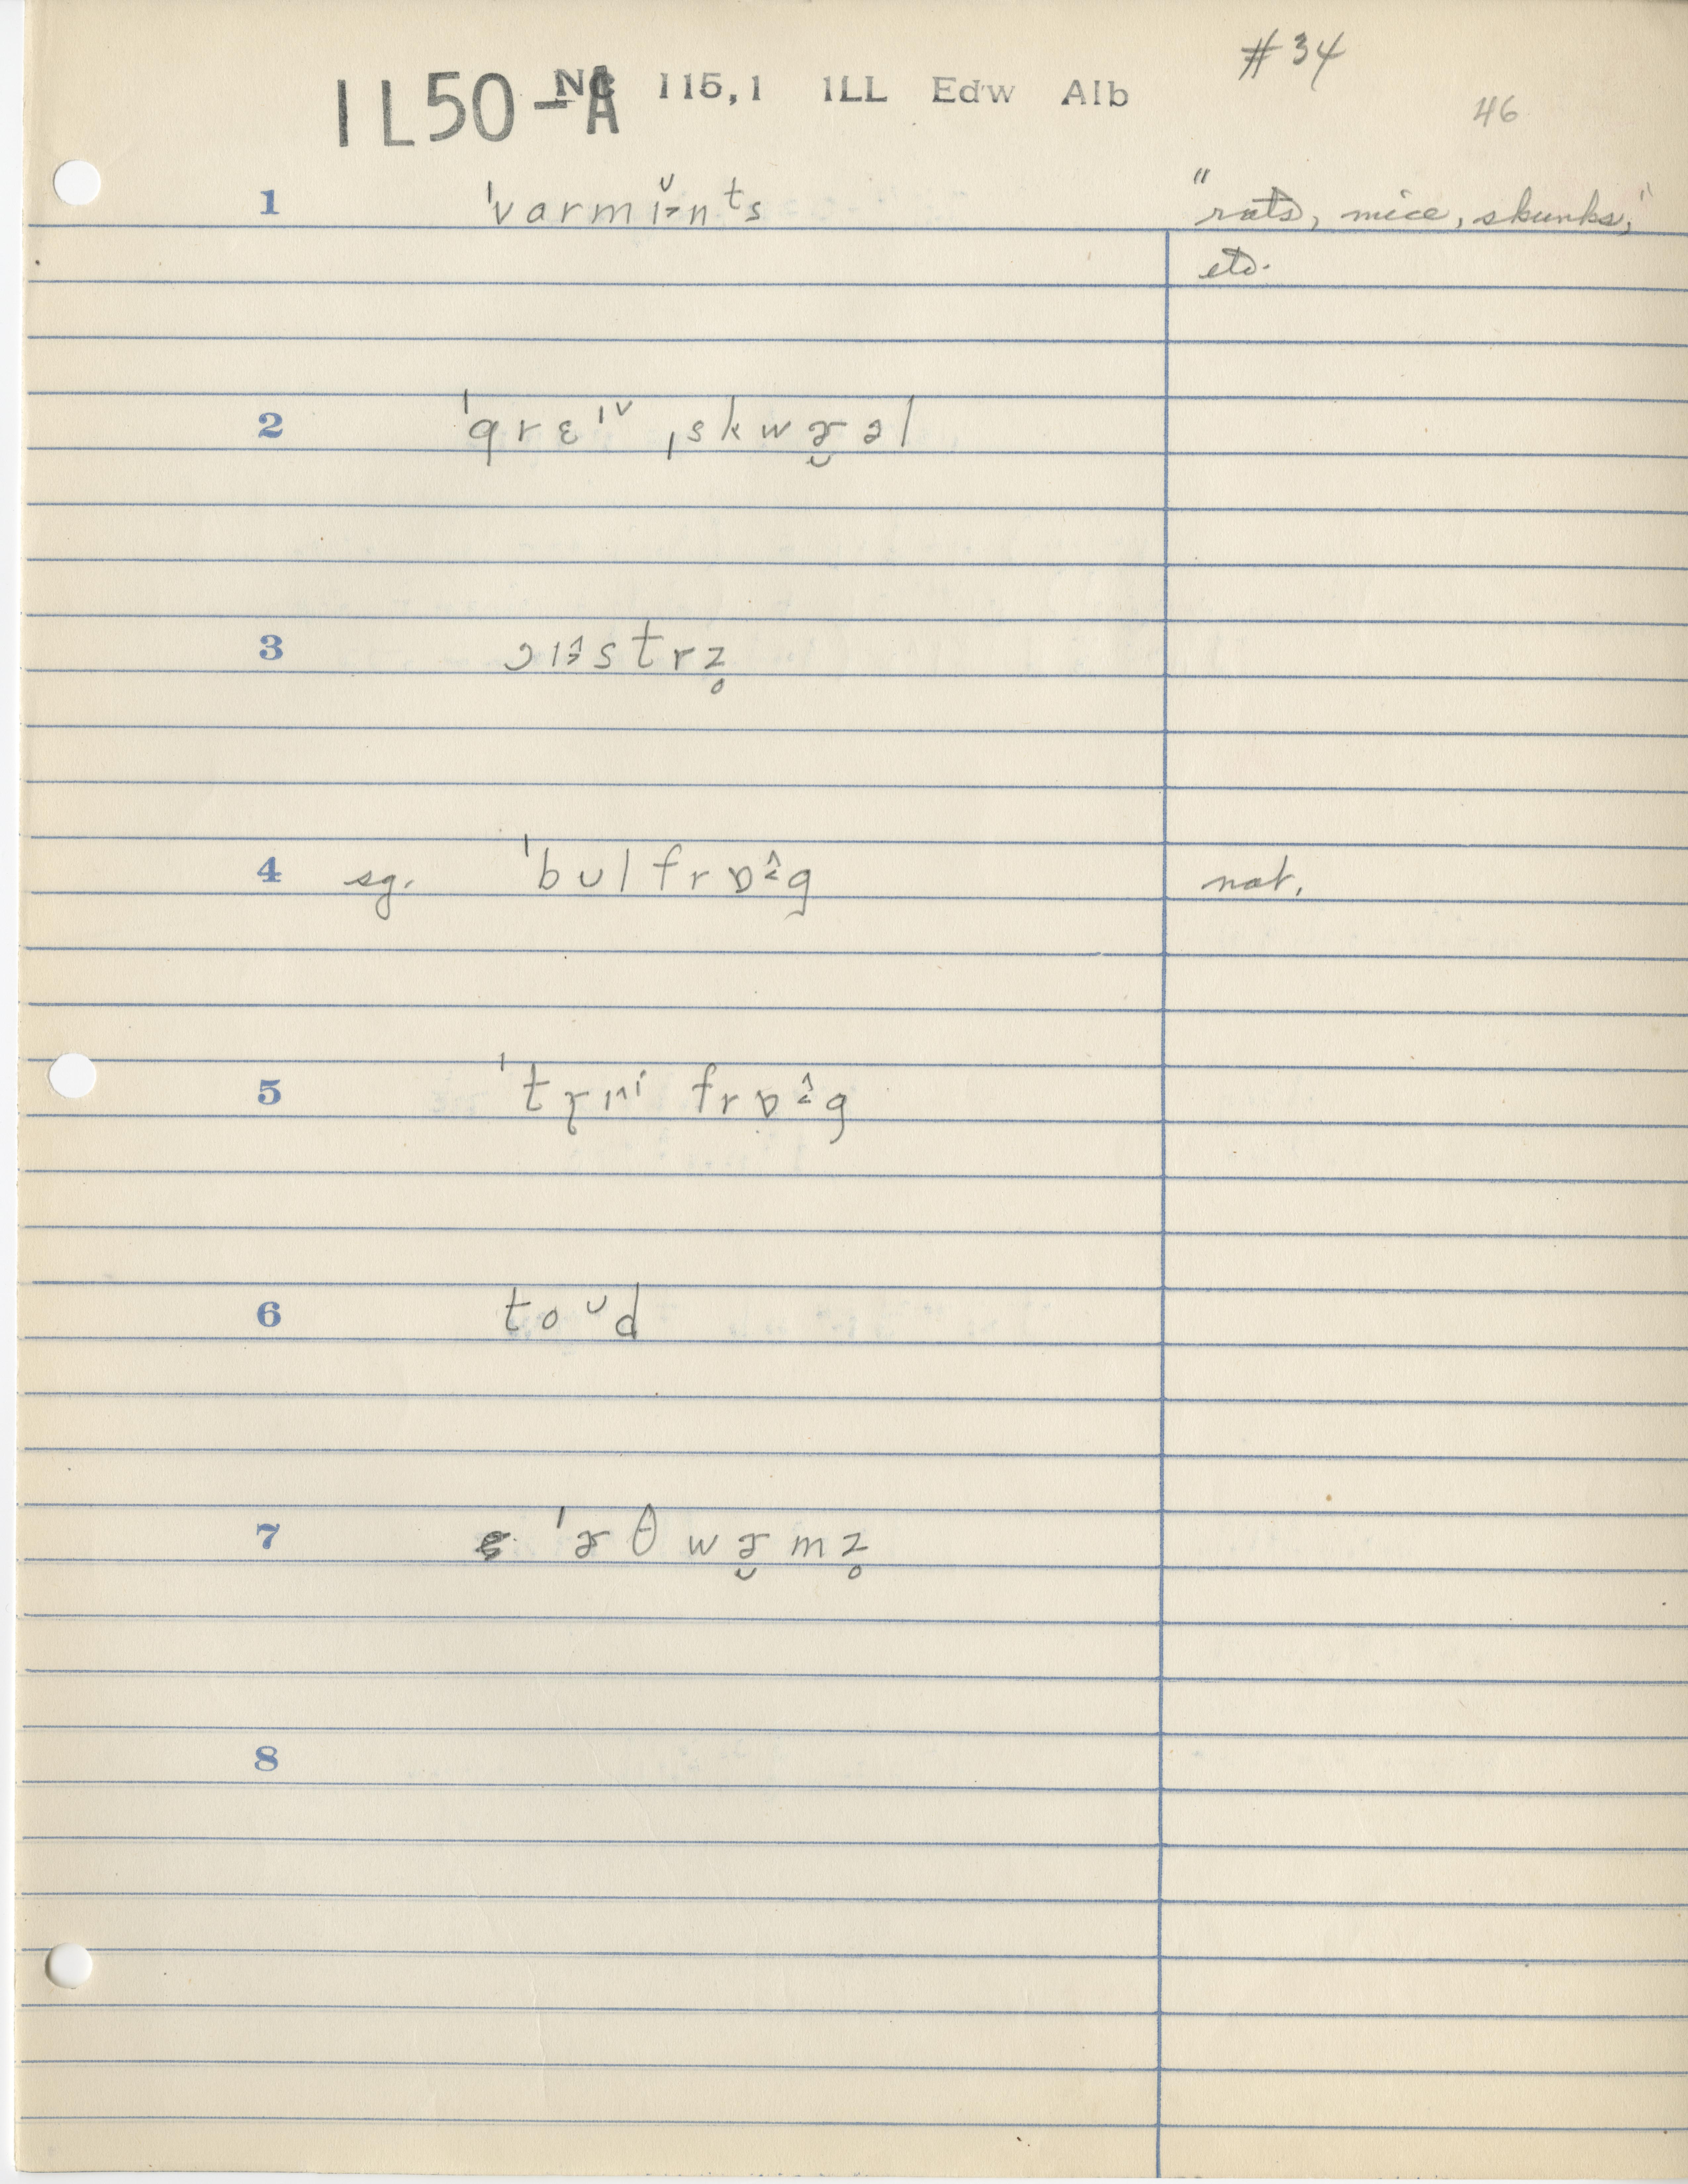 #34
IL50-A NC 115,1 ILL Edw Alb
46
1 ˈvarmɪ̆˃nᵗs "rats, mice, skunks,"
etc.
2 ˈgrɛᶦᵛ ˌskwɚ̯əl
3 ɔɪ˄˃strz̥
4 sg. ˈbʊlfrɒ˄˂g nat.
5 frɒ˄˂g
6 toᵁd
7 ˈɚθwɚ̯mz̥
8